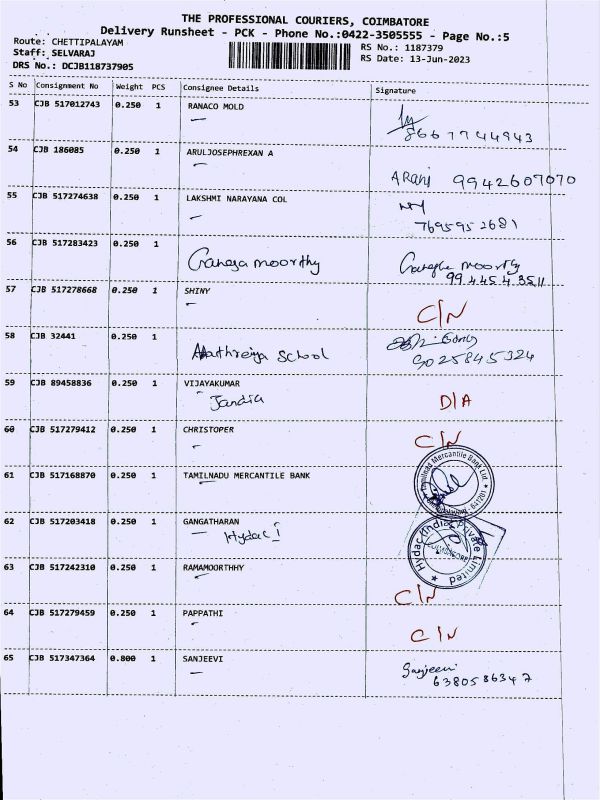 THE PROFESSIONAL COURIERS, COIMBATORE
Delivery Runsheet - PCK - Phone No.:0422-3505555 - Page No.:5
Route: CHETTIPALAYAM
Staff: SELVARAJ
DRS No.: DCJB118737905
RS No.: 1187379
RS Date: 13-Jun-2023
S No Consignment No Weight PCS Consignee Details Signature
53 CJB 517012743 0.250 1 RANACO MOLD
8667744943
54 CJB 186085 0.250 1 ARULJOSEPHREXAN A
9942607070
55 CJB 517274638 0.250 1 LAKSHMI NARAYANA COL
7695952681
56 CJB 517283423 0.250 1 Ganesa moorthy
moorthy
9944543511
57 CJB 517278668 0.250 1 SHINY C/N
58 CJB 32441 0.250 1 School
9025845324
59 CJB 89458836 0.250 1 VIJAYAKUMAR
D/A
60 CJB 517279412 0.250 1 CHRISTOPER C/N
61 CJB 517168870 0.250 1 TAMILNADU MERCANTILE BANK
Tamilnad Mercantile Bank Ltd.
641201
62 CJB 517203418 0.250 1 GANGATHARAN
Hydac
Hydac (India) Private Limited
COIMBATORE
63 CJB 517242310 0.250 1 RAMAMOORTHHY
C/N
64 CJB 517279459 0.250 1 PAPPATHI
C/N
65 CJB 517347364 0.800 1 SANJEEVI
Sanjeevi
6380586347